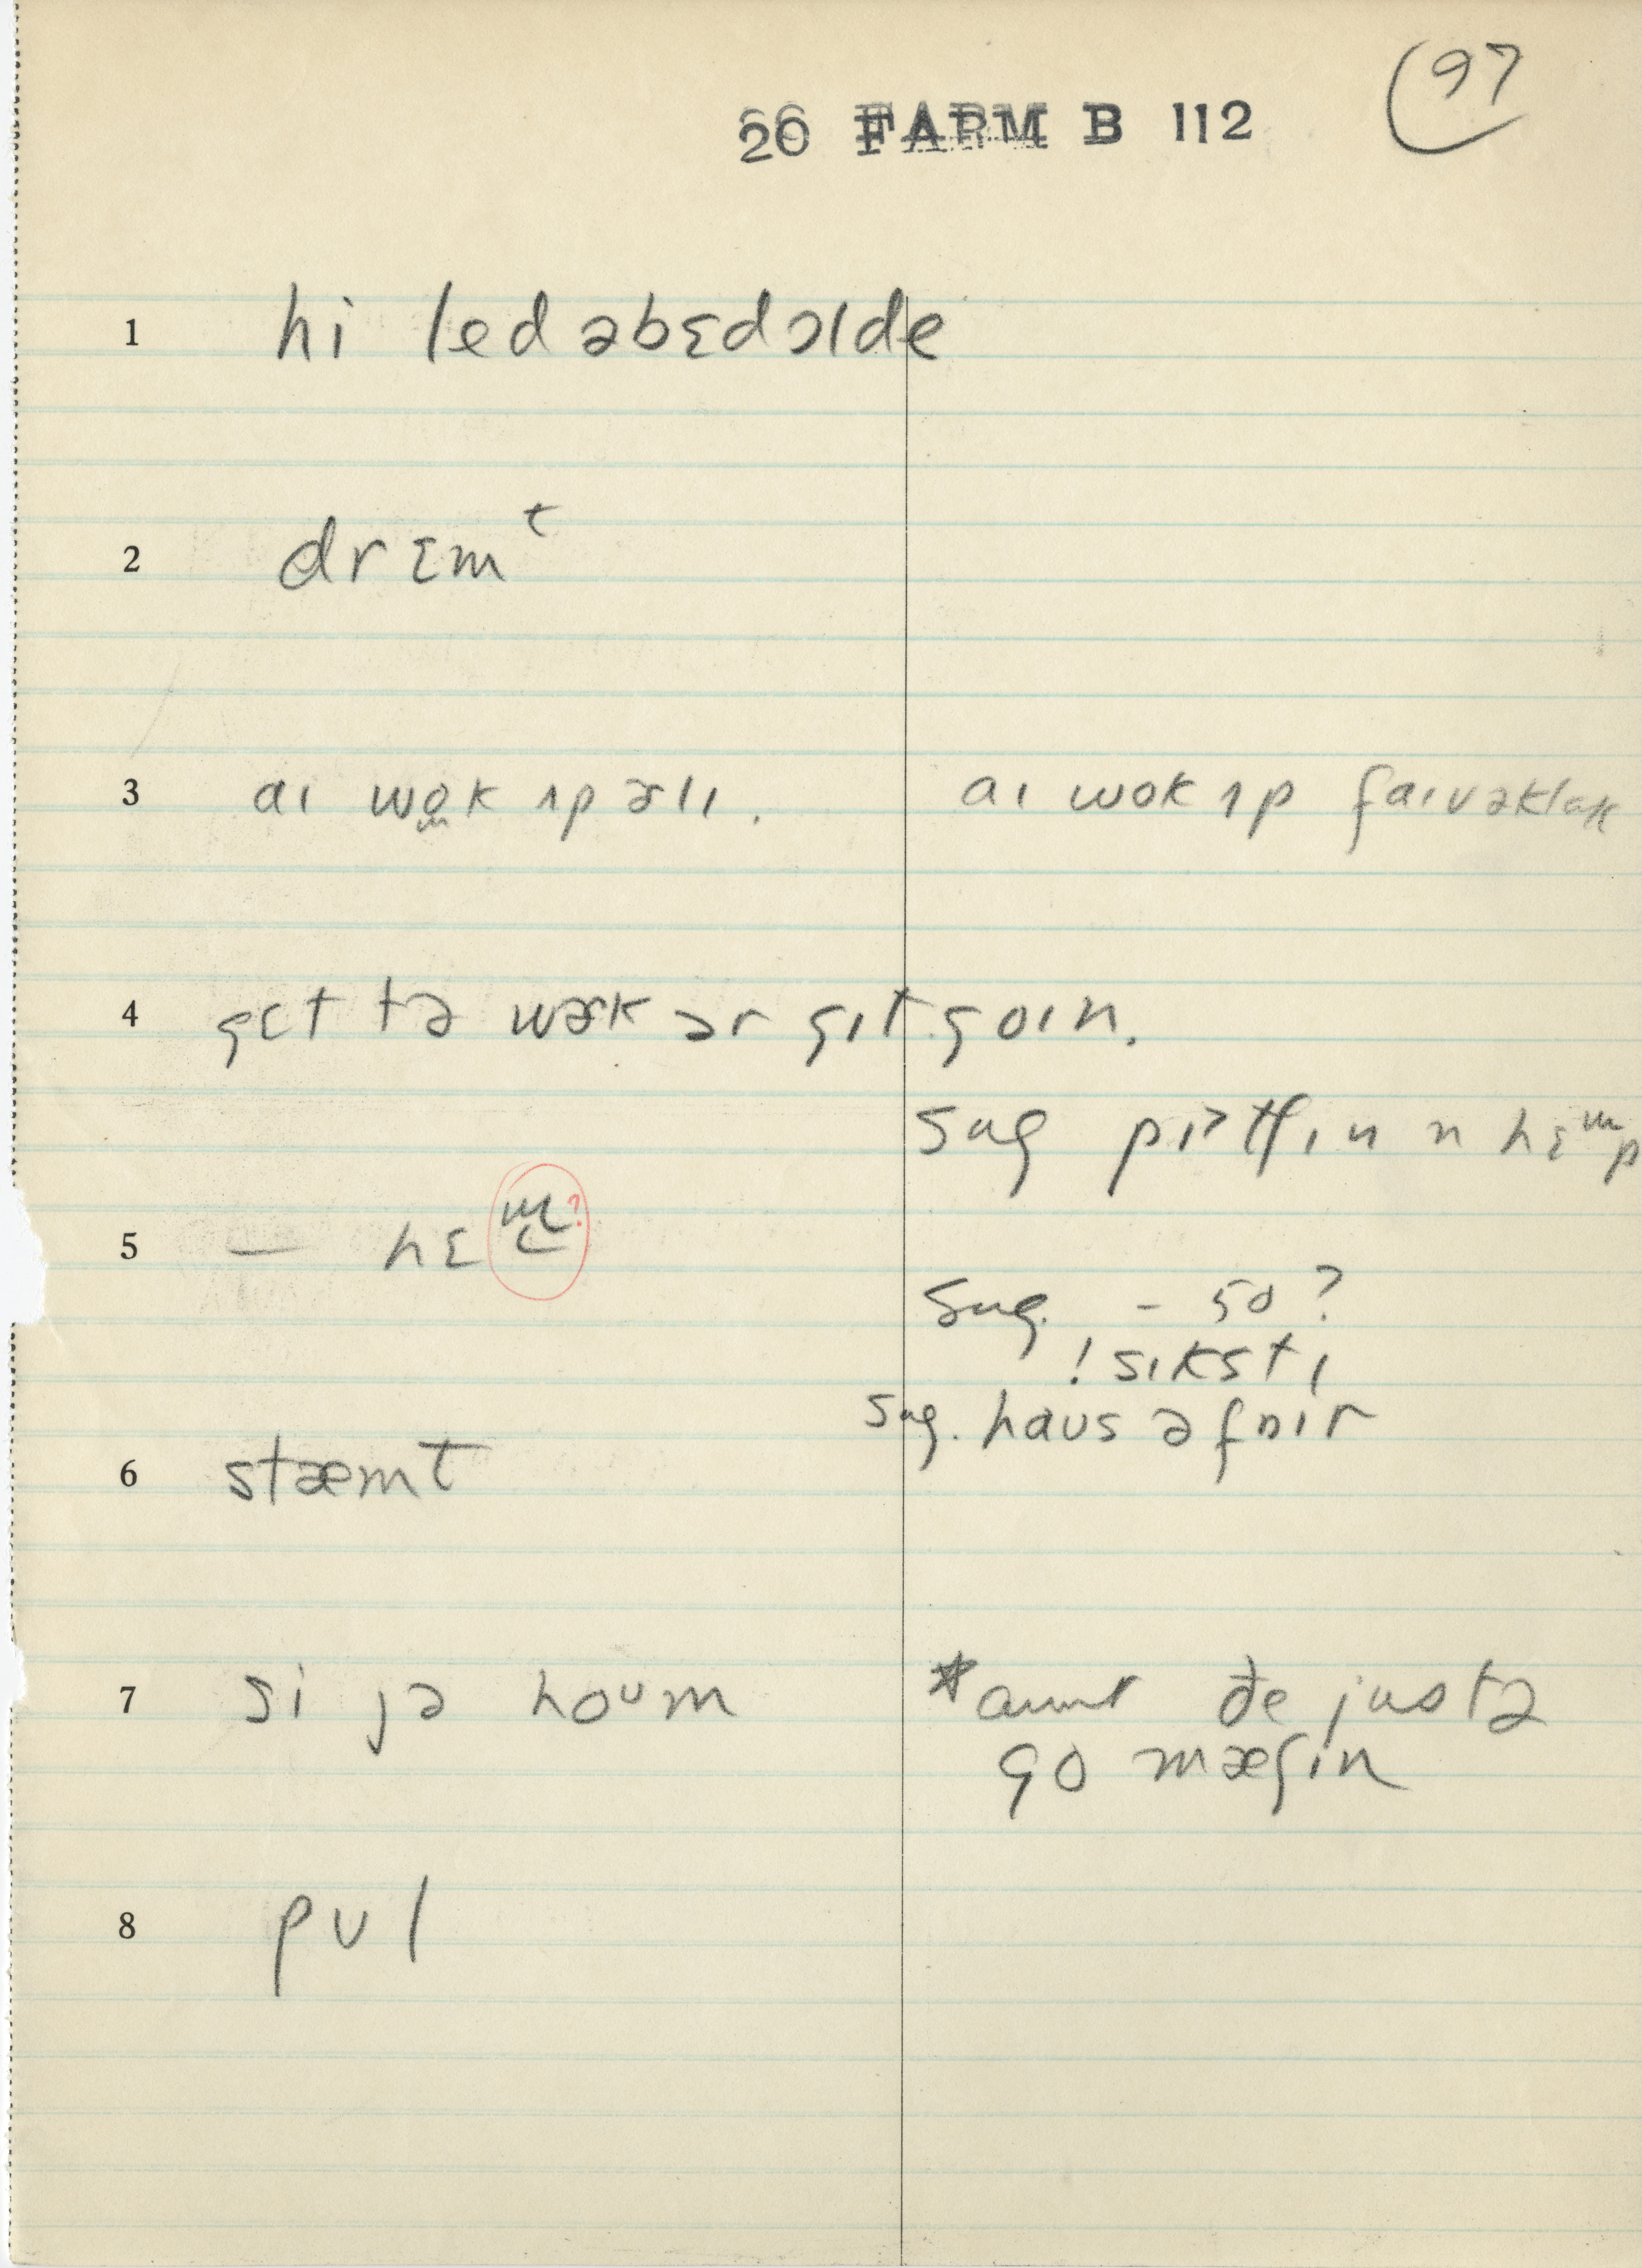 97
26 FARM B 112
1 hi led əbɛdɔlde
2 drɛmᵗ
3 aɪ wok ɿp ɚlɪ. aɪ wok ɿp faɪvəklak
4 gɛt tə wɚk ɔr gɪt goɪn.
sug pɪtʃɪn n hɛᵐp
5 — hɛ m ?
sug. – 50?
! sɪkstɪ
sug. haus əfaɪr
6 stæmt
7 si jə hoᵘm *aunt ðe justə
go mæʃin
8 pʊl